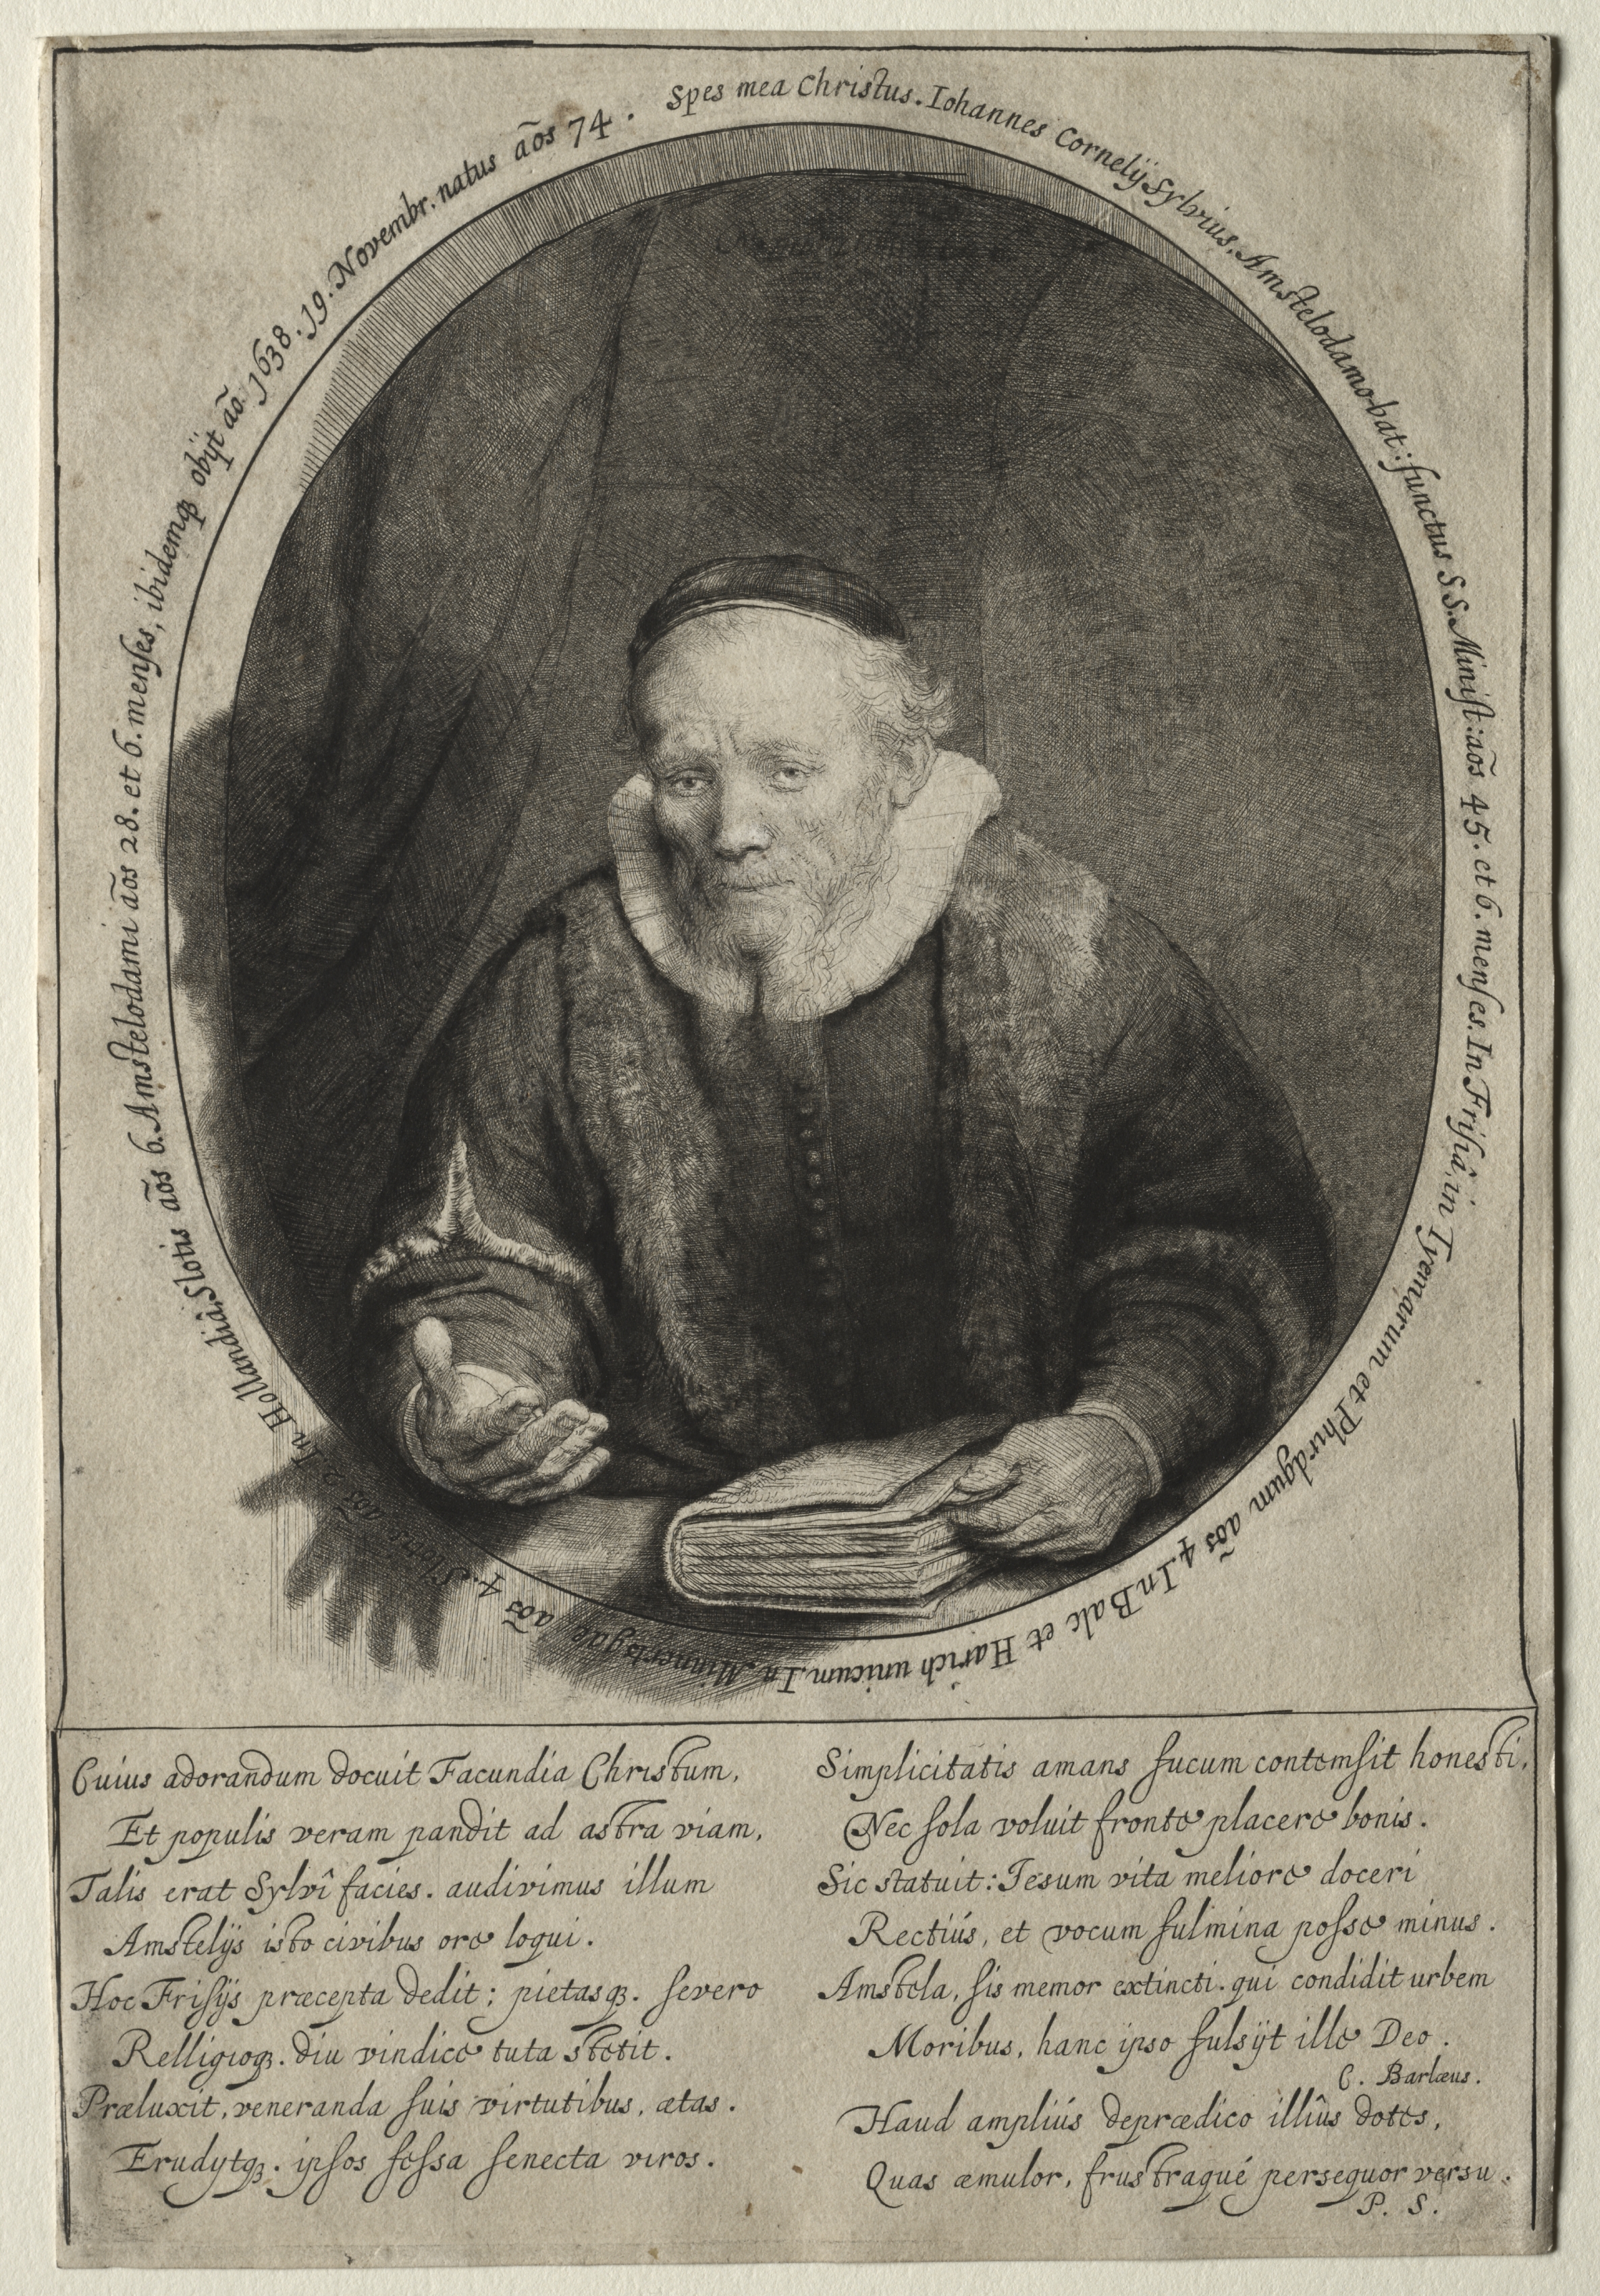 Spes mea Christus. Iohannes Cornelij Sylvius, Amstelodamo-bat: functus S S. Minist: ãos 45. et 6. menses. In Frisiâ, in Tyemarum et Phirdgum ãos 4. In Balc et Harich unicum. In Minnertsgae ãos 4. Slotis ãos 2. In Hollandiâ, Slotis ãos 6. Amstelodami ãos 28. et 6. menses, ibidemqȝ obijt ão. 1638. 19. Novembr. natus ãos 74.
Cuius adorandum docuit Facundia Christum,
Et populis veram pandit ad astra viam,
Talis erat Sylvî facies. audivimus illum
Amstelijs isto civibus ore loqui.
Hoc Frisijs præcepta dedit; pietasqȝ. severo
Relligioqȝ. diu vindice tuta stetit.
Præluxit, veneranda suis virtutibus, ætas.
Erudytqȝ. ipsos fessa senecta viros.
Simplicitatis amans fucum contemsit honesti,
Nec sola voluit fronte placere bonis.
Sic statuit: Iesum vita meliore doceri
Rectiús, et vocum fulmina posse minus.
Amstela, sis memor extincti. qui condidit urbem
Moribus, hanc ipso fulsijt ille Deo.
C. Barlæus.
Haud ampliús deprædico illîus dotes,
Quas æmulor, frustraqué persequor versu.
P. S.